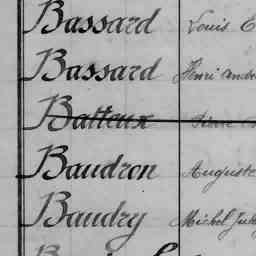 Bassard Louis E
Bassard Henri André
Batteux Pierre
Baudron Auguste
Baudry Michel Jules